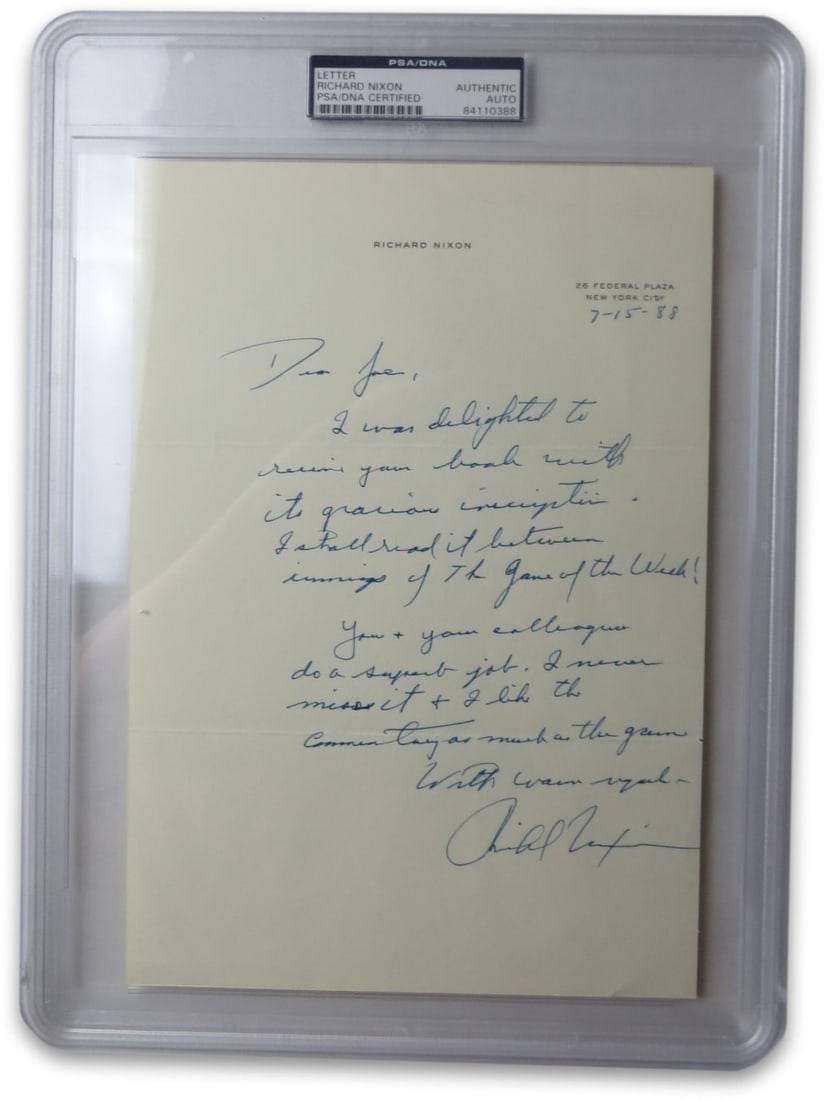 PSA/DNA
LETTER
RICHARD NIXON AUTHENTIC
PSA/DNA CERTIFIED AUTO
84110388
RICHARD NIXON
26 FEDERAL PLAZA
NEW YORK CITY
7-15-88
Dear Joe,
I was delighted to
receive your book with
its gracious inscription.
I shall read it between
innings of The Game of the Week!
You + your colleagues
do a superb job. I never
miss it + I like the
commentary as much as the game.
With warm regards
Richard Nixon